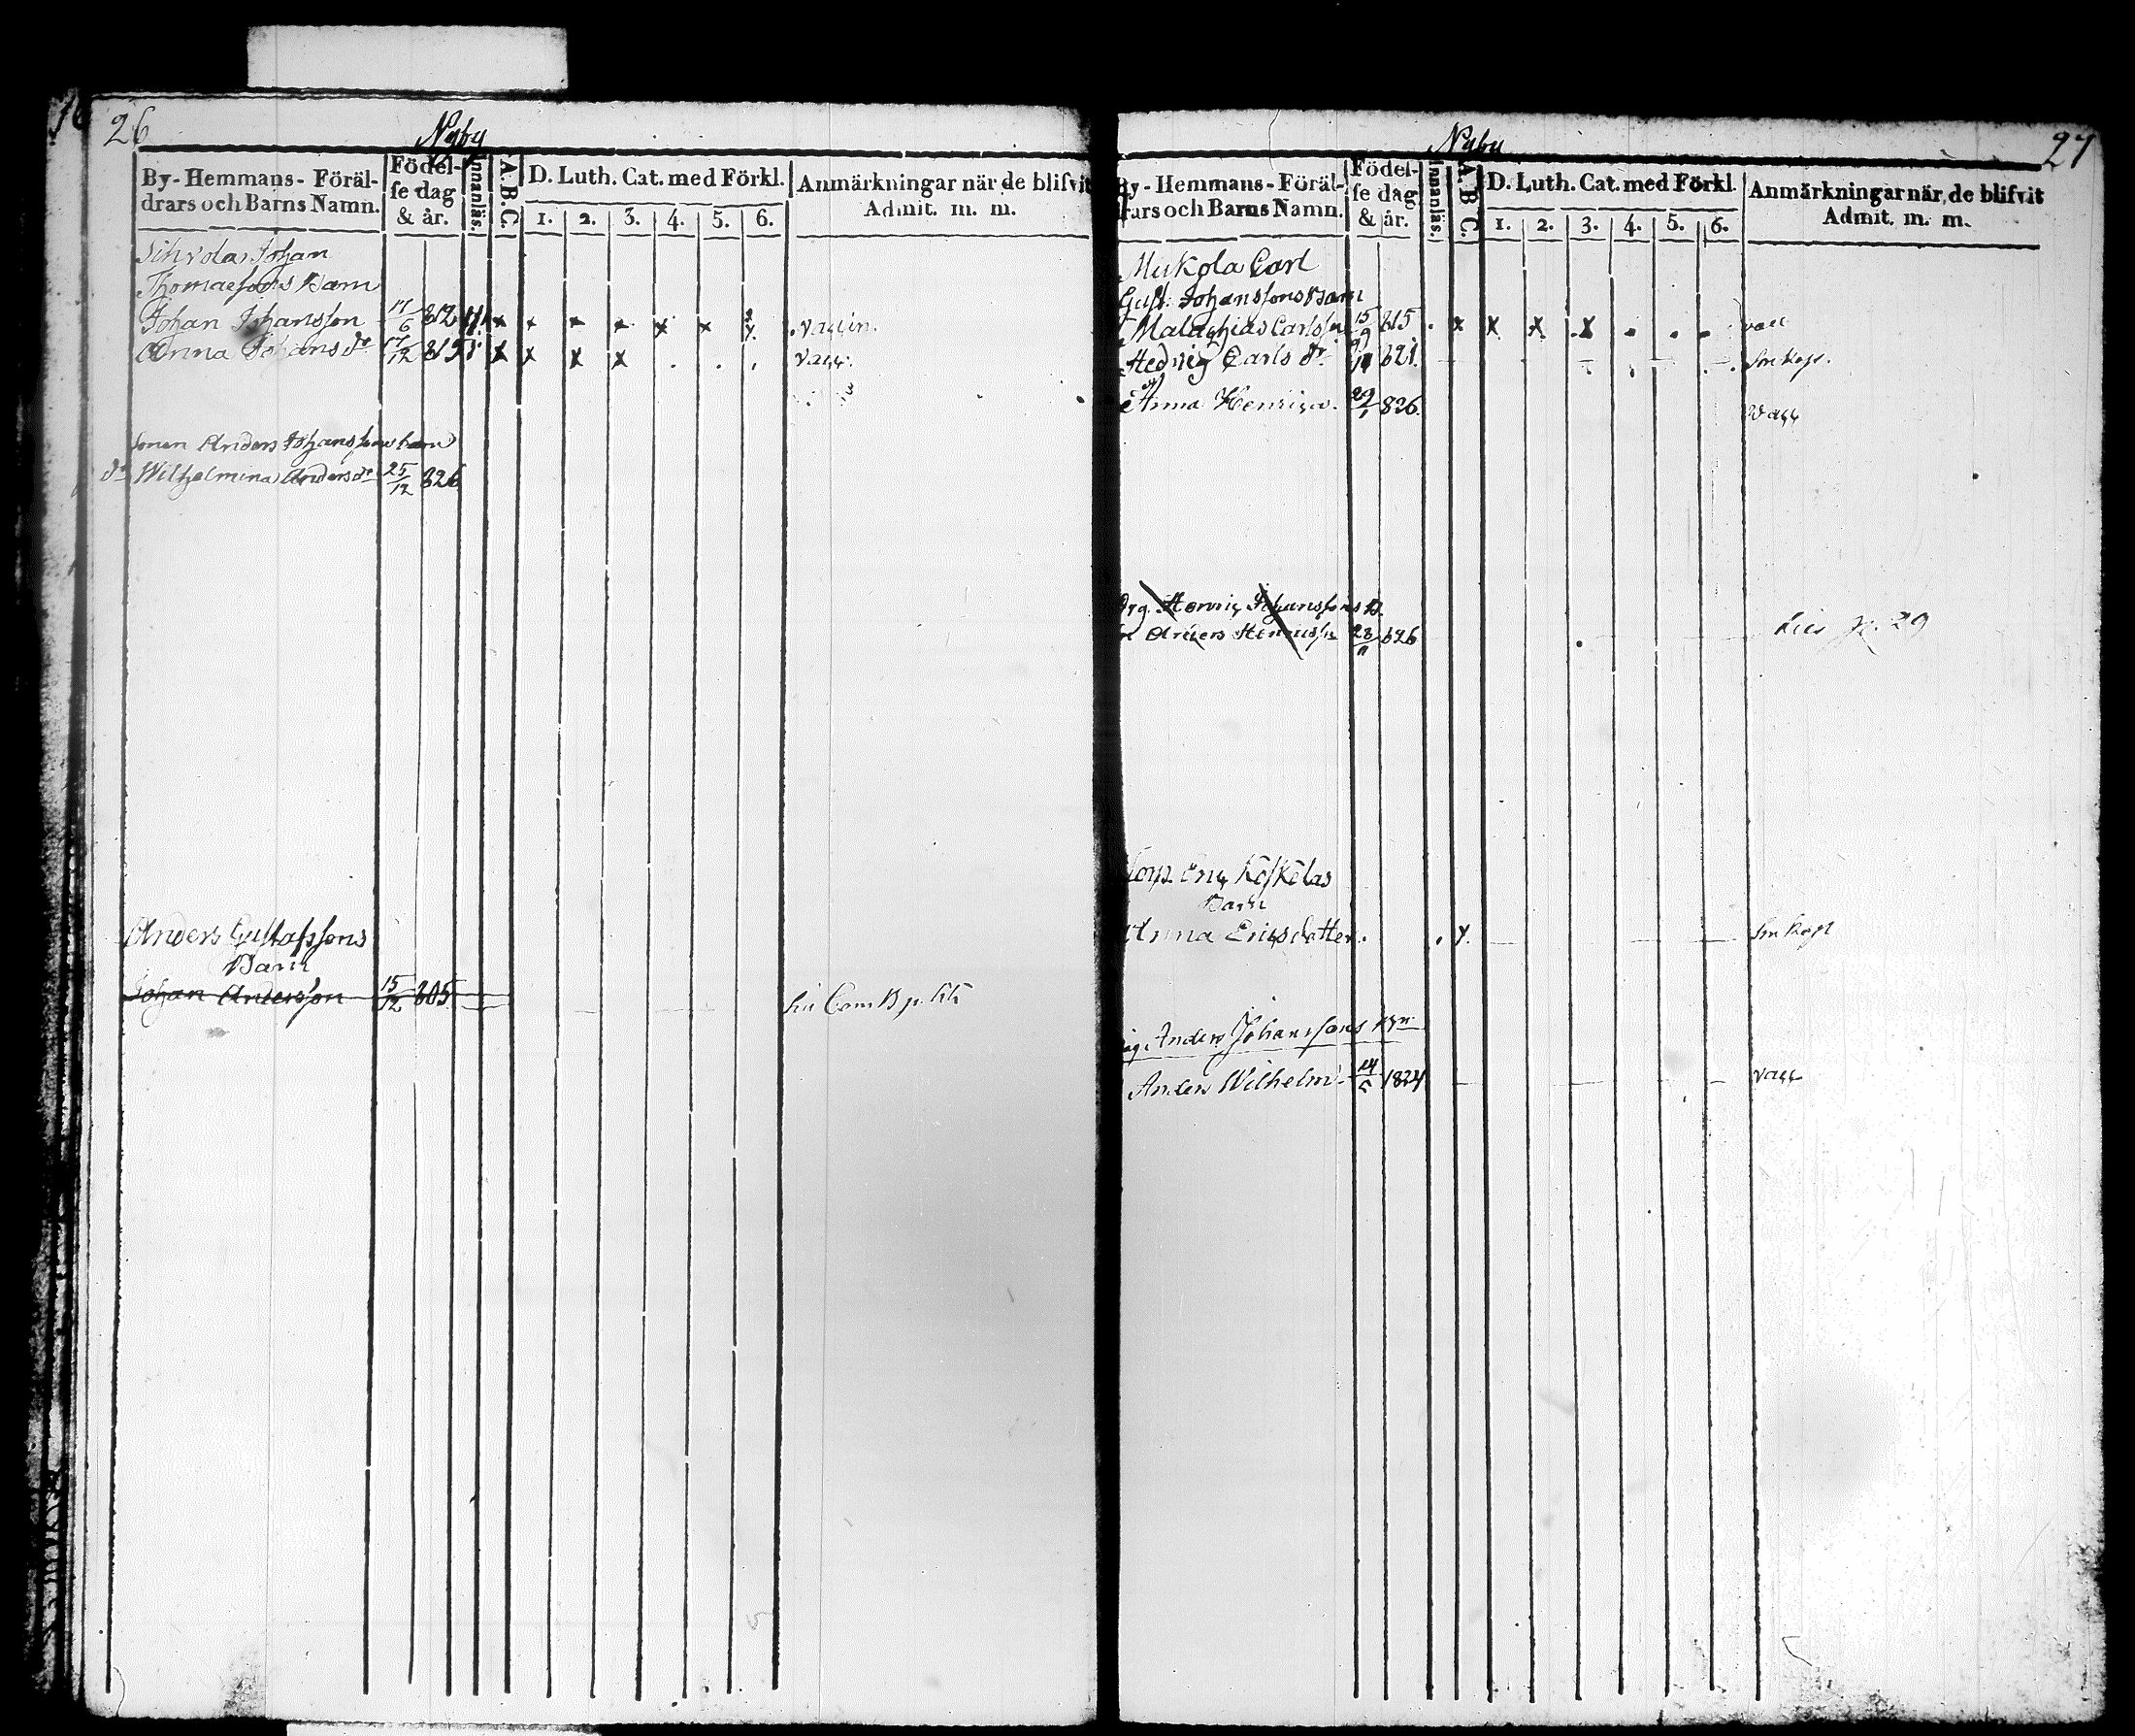 26
Nyby
By-Hemmans-Föräl-
drars och Barns Namn.
Födel-
se dag
& år.
Innanläs.
A. B. C.
D. Luth. Cat. med Förkl.
1. 2. 3. 4. 5. 6.
Anmärkningar när de blifvit
Admit. m. m.
Johan
Thomaessons Barn
Johan Johansson 17/6 812 x x x x x x vaccin.
Anna Johans dr 17/12 815 x x x x . . . vacc.
Sonen Anders Johanssons barn
dr Wilhelmina Anders dr 25/12 826
Anders Gustafssons
Barn
Johan Andersson 15/12 805
27
Nyby
By-Hemmans-Föräl-
drars och Barns Namn.
Födel-
se dag
& år.
Innanläs.
A. B. C.
D. Luth. Cat. med Förkl.
1. 2. 3. 4. 5. 6.
Anmärkningar när de blifvit
Admit. m. m.
Mukola Carl
Gust. Johanssons Barn
Malachias Carlsson 15/9 815 . x x x x . . . vacc
Hedvig Carls dr 821. Smkop.
Anna Henrica. 29/1 826. Vacc
Drg. Henric Johanssons B.
Sn Anders Henricsson 28/11 826 p. 29
Torp. Eric Koskelas
Barn
Anna Ericsdotter. . x. Smkop
Anders Johanssons Bn
Anders Wilhelm 14/5 1824 vacc